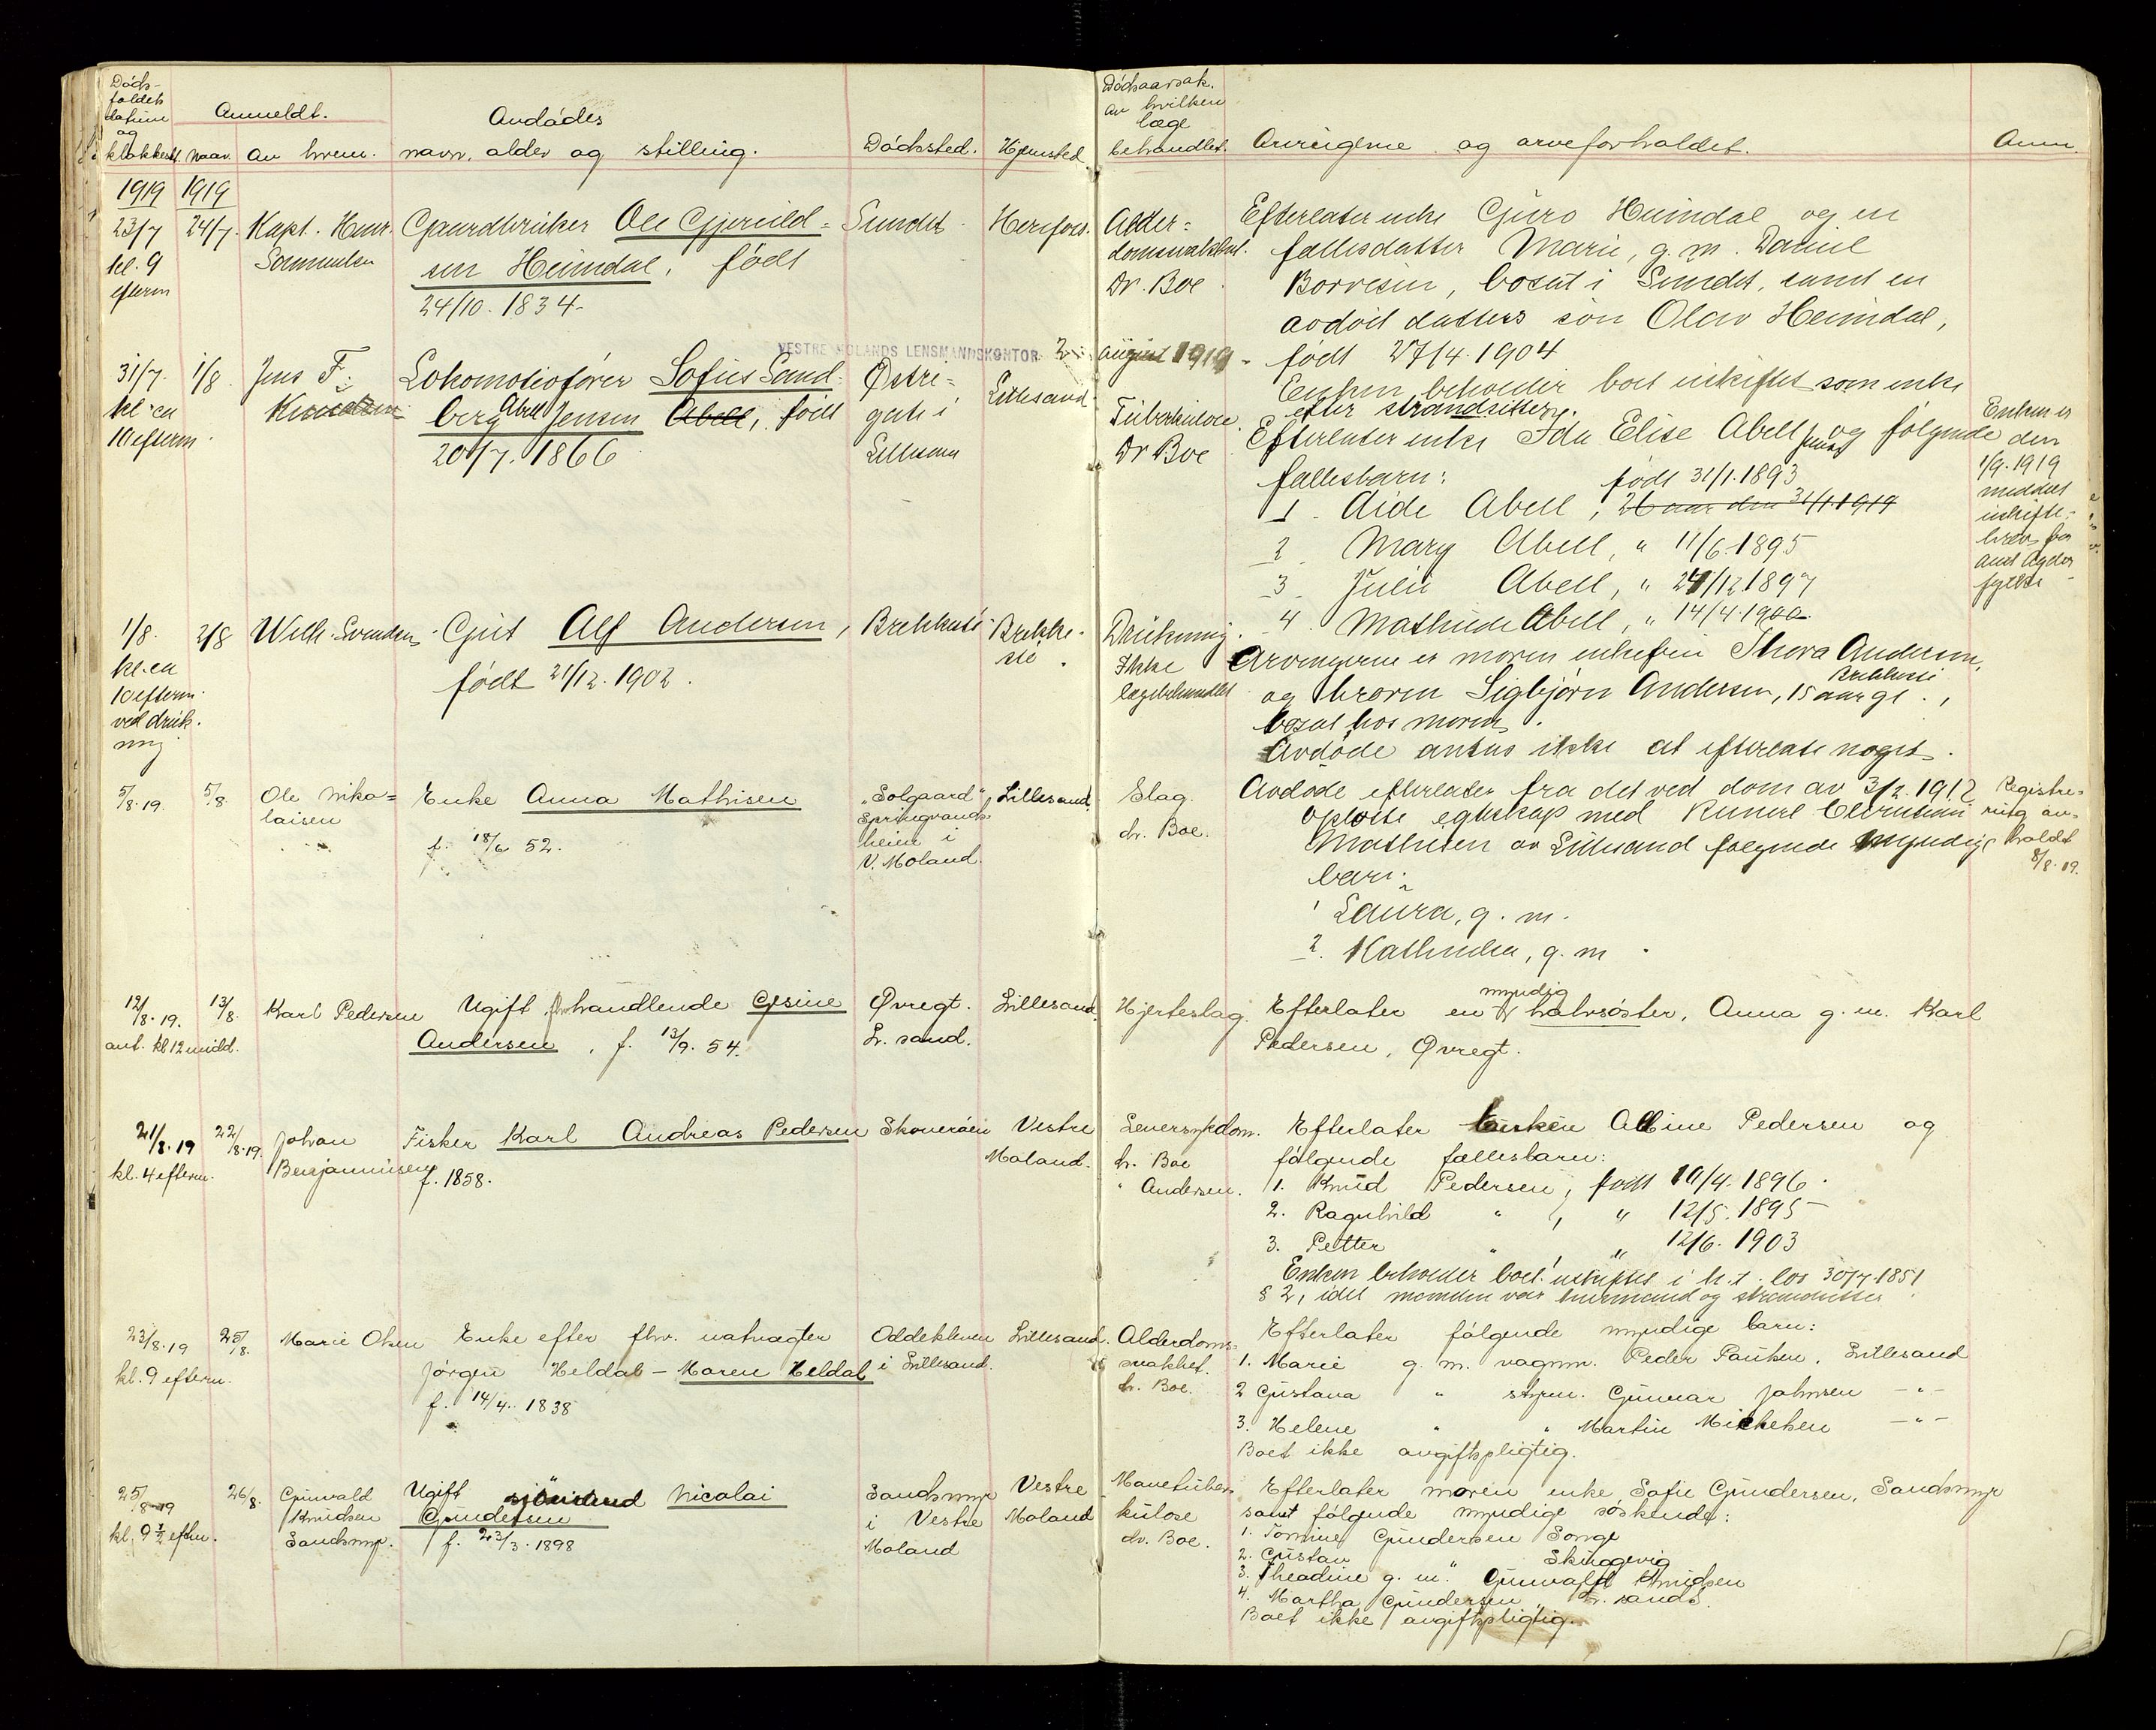 Døds-
faldets
datum
og
klokkesl.
Anmeldt.
naar.
av hvem.
Avdødes
navn, alder og stilling.
Dødssted.
Hjemsted
Dødsaarsak.
av hvilken
læge
behandlet.
Arvingerne og arveforholdet.
Anm.
1919 1919
23/7
kl. 9
efterm
24/7.
Kapt. Henr.
Gaardbruker Ole Gjeruld-
sen Heimdal, født
24/10. 1834.
Sundet
Alder-
Dr. Boe
Efterlater enke Guro Heimdal og en
fællesdatter Marie, g. m. Daniel
bosat i Sundet, samt en
avdød datters søn Olav Heimdal,
født 27/4. 1904
Enken beholder boet uskiftet som enke
efter strandsitter.
VESTRE MOLANDS LENSMANDSKONTOR 2. august 1919
31/7.
kl. ca
10 efterm.
1/8.
Jens F.
Knudsen
Lokomotivfører Sofus Sand-
berg Abell Jensen Abell, født
20/7. 1866
Østre-
gate i
Lillesand
Lillesand
Tuberkulose.
Dr Boe
Efterlater enke Ida Elise Abell Jensen og følgende
fællesbarn: født 31/1. 1893
1. Aide Abell, 26 aar den 31/1. 1919
2. Mary Abell, " 11/6. 1895
3. Julie Abell, " 24/12 1897
4. Mathilde Abell, " 14/4. 1900
Enken er
den
1/9. 1919
meddelt
uskifte-
bev. fra
Aust Agder
fylke
1/8.
kl. ca
10 efterm.
ved druk-
ning
2/8
Wilh. Svendsen
Gut Alf Andersen,
født 21/12. 1902.
Brekkestø
Brekke-
stø.
Drukning.
Ikke
lægebehandlet
Arvingerne er moren enkefru Thora Andersen,
Brekkestø
og broren Sigbjørn Andersen, 15 aar gl.,
bosat hos moren.
Avdøde antas ikke at efterlate noget.
5/8. 19.
5/8.
Ole Niko-
laisen
Enke Anna Mathisen
f. 18/6 52.
"Solgaard",
Springvands-
heien i
V. Moland.
Lillesand.
Slag.
dr. Boe.
Avdøde efterlater fra det ved dom av 3/2. 1912
opløste egteskap med
Mathisen av Lillesand følgende myndige
barn:
1 Laura, g. m.
2. Kathinka, g. m.
Registre-
ring av-
holdt
8/8. 19.
12/8. 19.
ant. kl 12 midd.
13/8.
Karl Pedersen
Ugift fhv. handlende Gesine
Andersen, f. 13/9. 54.
Øvregt.
L. sand.
Lillesand.
Hjerteslag.
Efterlater en myndig halvsøster, Anna g. m. Karl
Pedersen, Øvregt.
21/8. 19
kl. 4 efterm.
22/8. 19.
Johan
Benjaminsen
Fisker Karl Andreas Pedersen
f. 1858.
Skauerøen
Vestre
Moland.
Leversykdom.
dr. Boe
" Andersen.
Efterlater enken Alline Pedersen og
følgende fællesbarn:
1. Knud Pedersen, født 10/4. 1896.
2. Ragnhild " , " 12/5. 1895
3. Petter " , " 12/6. 1903
Enken beholder boet uskiftet i h. t. lov 30/7. 1851
§ 2, idet manden var husmand og strandsitter.
23/8. 19
kl. 9 efterm.
25/8.
Marie Olsen
Enke efter fhv. natvagter
Jørgen Heldal – Maren Heldal
f. 14/4. 1838
Oddekleven
i Lillesand.
Lillesand.
Alderdoms-
svakhet.
dr. Boe.
Efterlater følgende myndige barn:
1. Marie g. m. vognm. Peder Paulsen, Lillesand
2 Gustava " styrm. Gunnar Johnsen – " –
3. Helene " " Martin Mickelsen – " –
Boet ikke avgiftspligtig.
25/8. 19
kl. 9 1/2 eftm.
26/8.
Gunvald
Knudsen
Sandsmyr.
Ugift sjømand Nicolai
Gundersen
f. 23/3. 1898
Sandsmyr
i Vestre
Moland
Vestre
Moland
Mavetuber-
kulose
dr. Boe.
Efterlater moren enke Sofie Gundersen, Sandsmyr
samt følgende myndige søskende:
1. Tomine Gundersen Songe
2. Gustav " Skuggevig
3. Theadine g. m. Gunvald Knudsen
4. Martha Gundersen, L. sand.
Boet ikke avgiftspligtig.